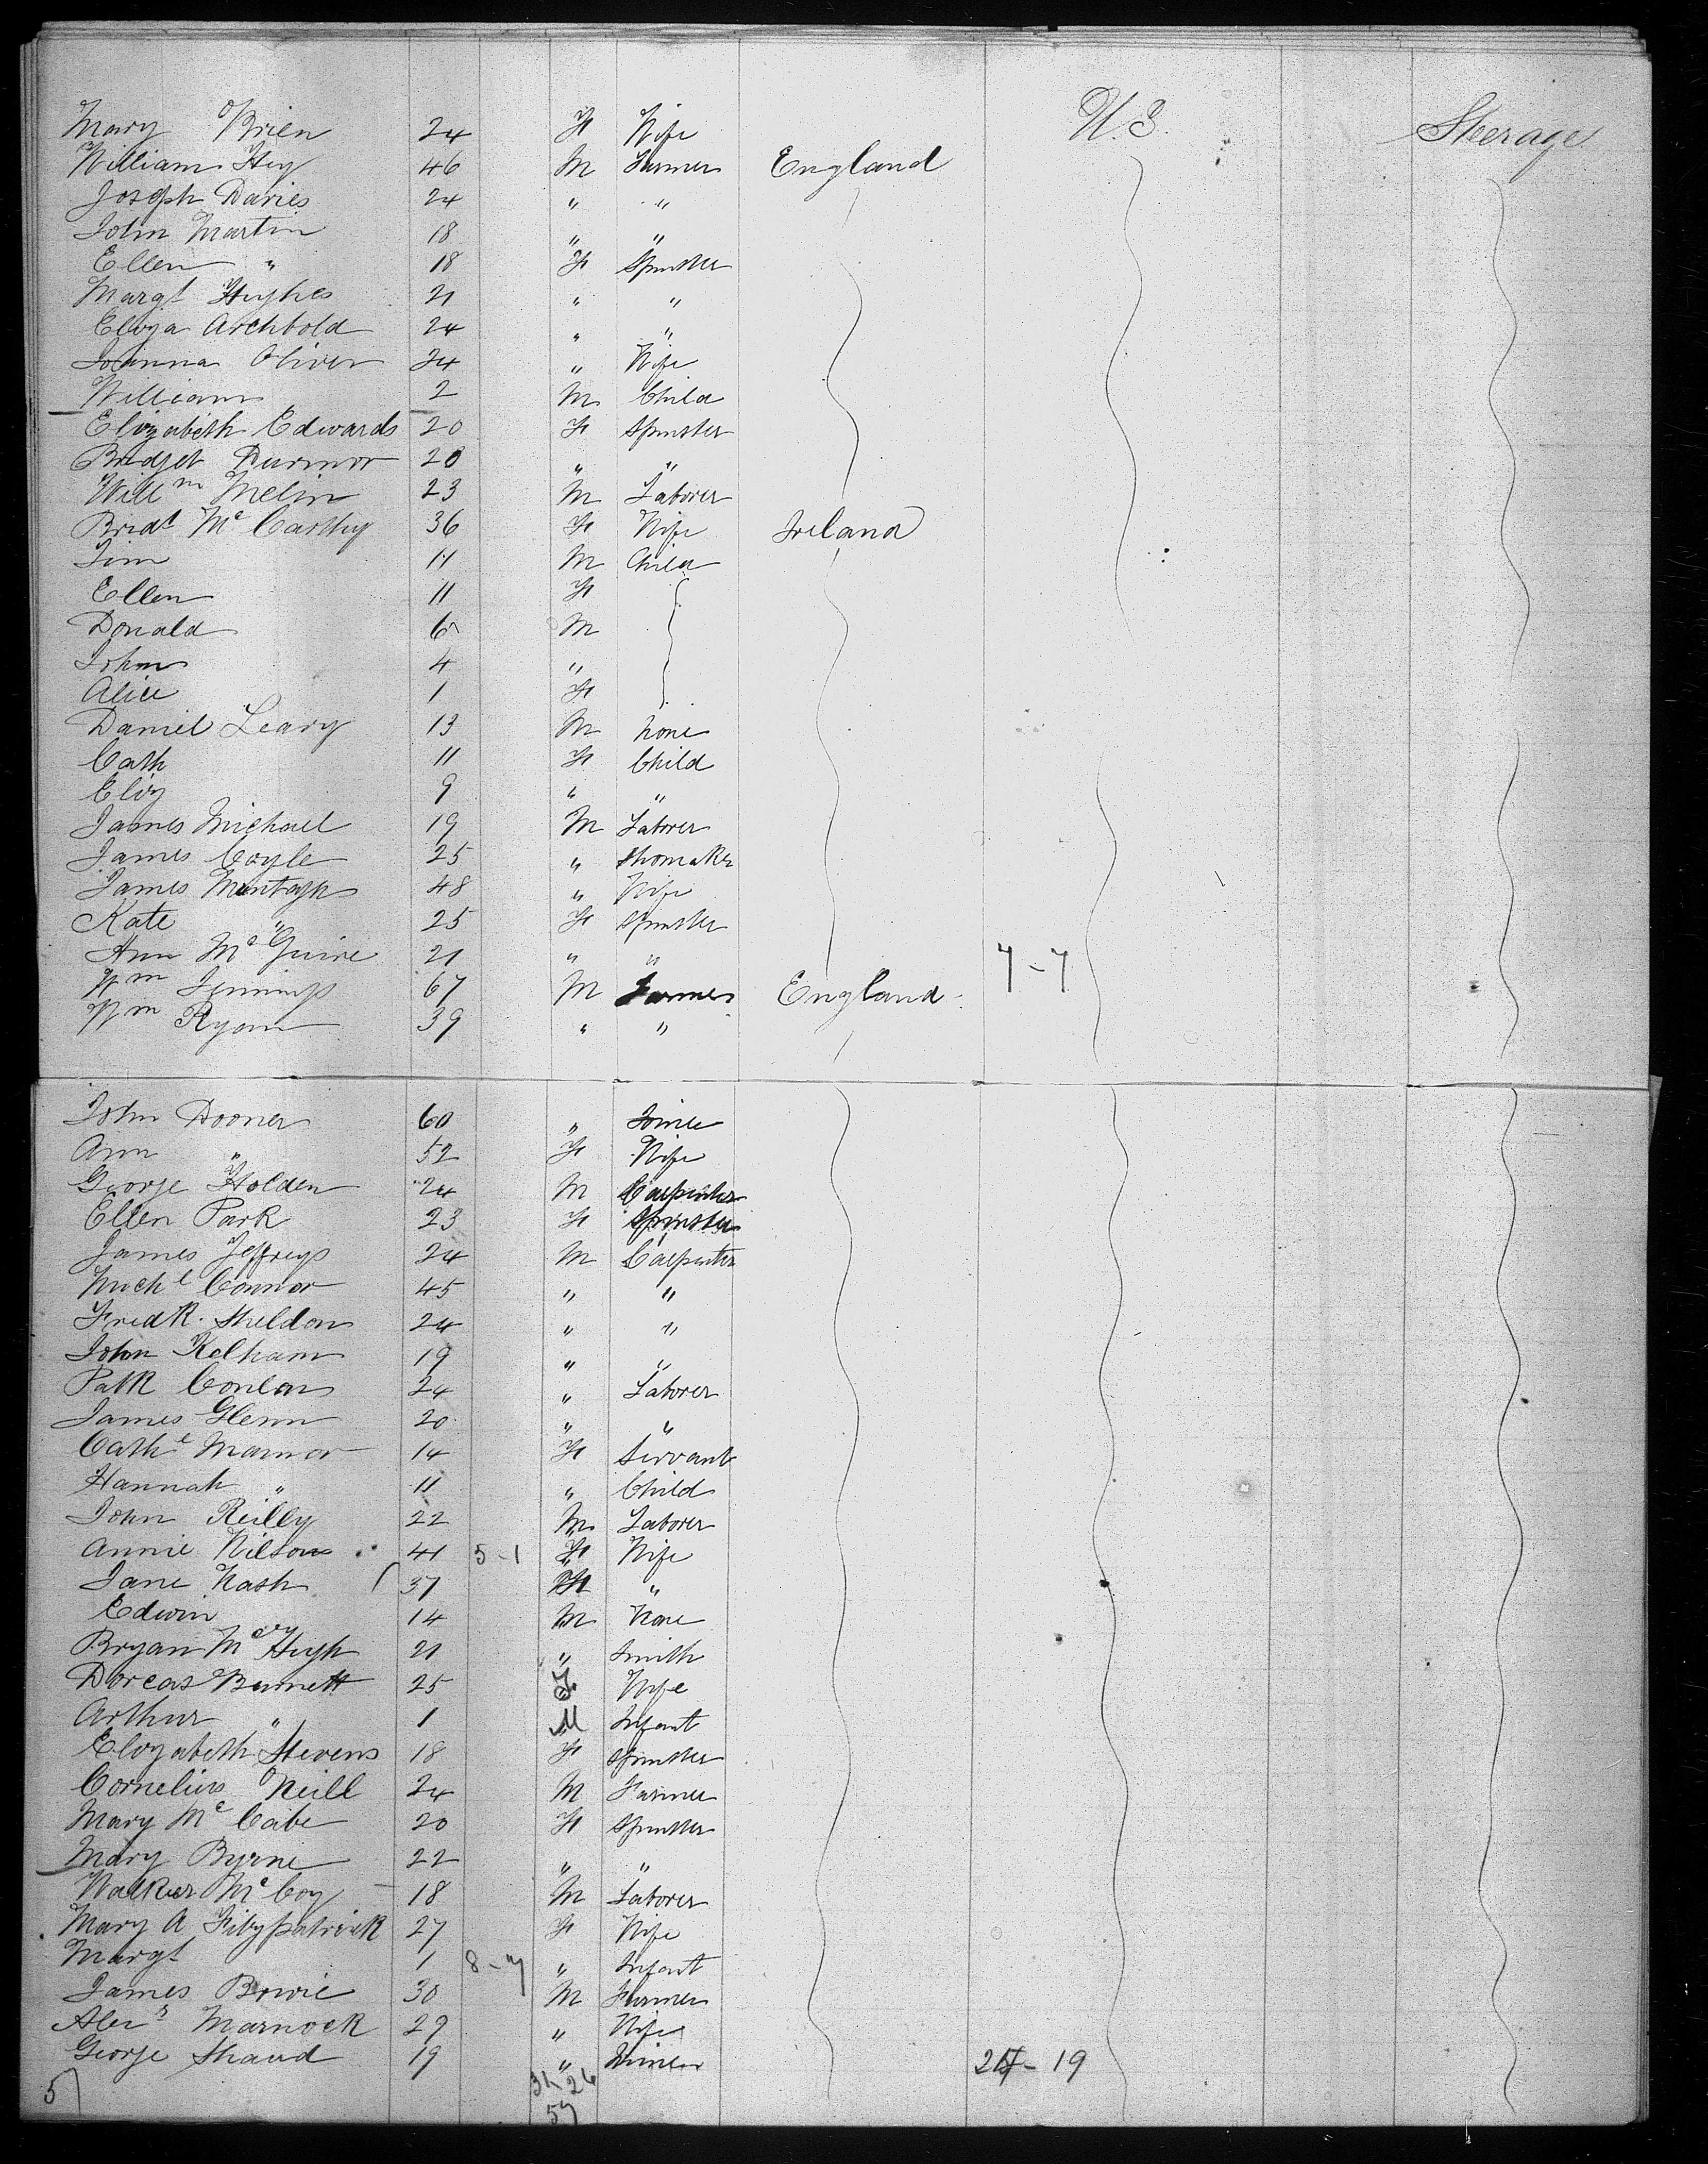 Mary O'Brien 24 F Wife U.S. Steerage
William Hey 46 M Farmer England
Joseph Davies 24 " "
John Martin 18 " "
Ellen " 18 F Spinster
Margt Hughes 21 " "
Eliza Archbold 24 " "
Joanna Oliver 24 " Wife
William 2 M Child
Elizabeth Edwards 20 F Spinster
Bridget 20 " "
Willm Melin 23 M Laborer
Bridt Mc Carthy 36 F Wife Ireland
Tim 11 M Child
Ellen 11 F
Donald 6 M
John 4 "
Alice 1 F
Daniel Leary 13 M none
Cath 11 F Child
Eliz 9 " "
James Michael 19 M Laborer
James Coyle 25 " Shomaker
James Muntagh 48 " Wife
Kate " 25 F Spinster
Ann Mc Guire 21 " " 7-7
Wm Jennings 67 M Farmer England
Wm Ryan 39 " "
John Dooner 60 "
Ann " 52 F Wife
George Holden 24 M Carpenter
Ellen Park 23 F Spinster
James Jeffreys 24 M Carpenter
Michl Connor 45 " "
Fredk. Sheldon 24 " "
John Kelham 19 " "
Patk Conlan 24 " Laborer
James Glenn 20 " "
Cathe Mannor 14 F Servant
Hannah " 11 " Child
John Reilly 22 M Laborer
Annie Wilson 41 5-1 F Wife
Jane Nash 37 "
Edwin 14 M None
Bryan Mc Hugh 21 " Smith
Dorcas Burnett 25 F Wife
Arthur " 1 M Infant
Elizabeth Stevens 18 F Spinster
Cornelius Neill 24 M Farmer
Mary Mc Cabe 20 F Spinster
Mary Byrne 22 " "
Walker Mc Coy 18 M Laborer
Mary A Fitzpatrick 27 F Wife
Margt 1 8-7 " Infant
James Bowie 30 M Farmer
Alexr Marnock 29 " Wife
George Shand 19 " 19
57 31 26
57